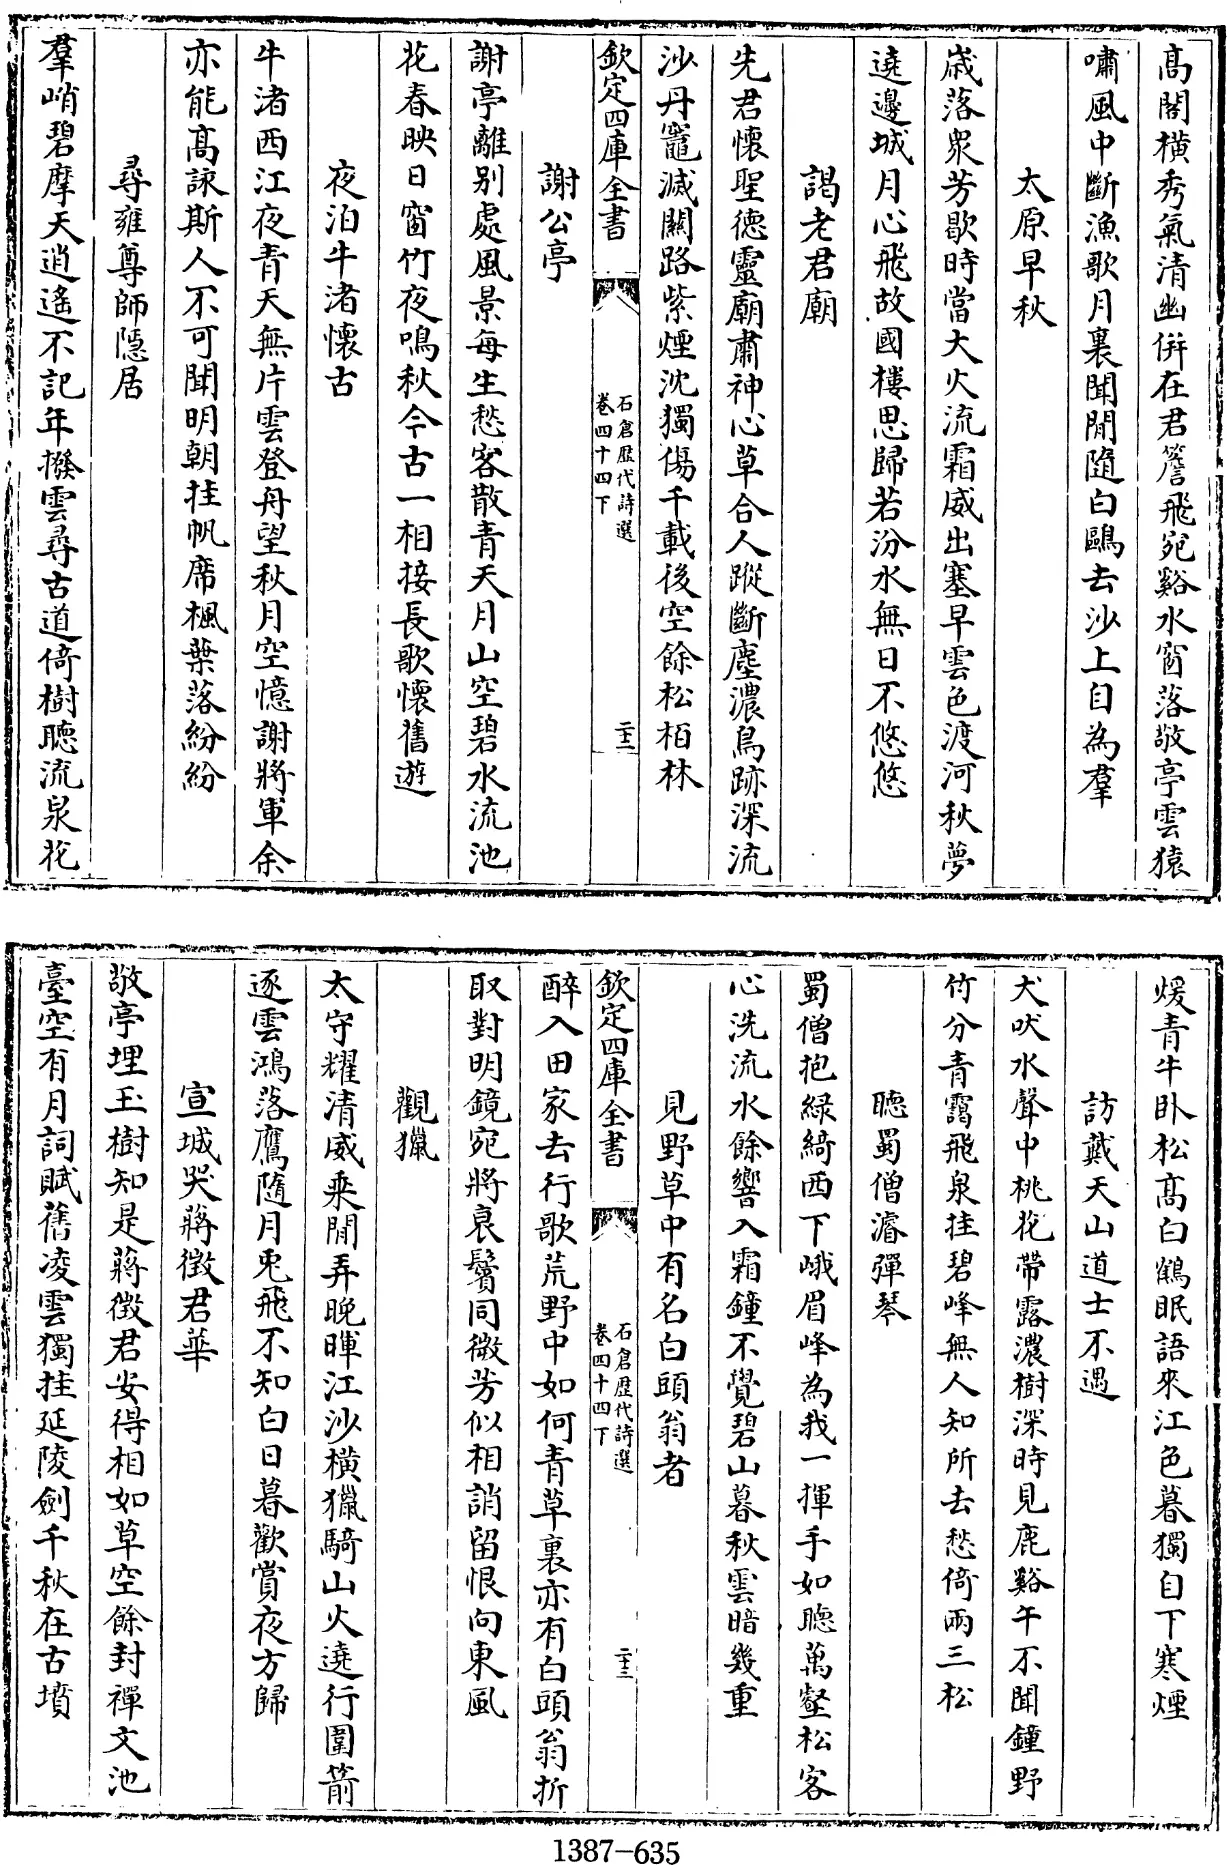 髙閣横秀氣清幽併在君簷飛宛谿水窗落敬亭雲猿
嘯風中斷漁歌月裏聞閒隨白鷗去沙上自為羣
太原早秋
歳落衆芳歇時當大火流霜威出塞早雲色渡河秋夢
遶邊城月心飛故國樓思歸若汾水無日不悠悠
謁老君廟
先君懷聖德靈廟肅神心草合人蹤斷塵濃鳥跡深流
沙丹竈滅關路紫煙沈獨傷千載後空餘松栢林
欽定四庫全書
石倉歴代詩選
卷四十四下
二十二
謝公亭
謝亭離别處風景每生愁客散青天月山空碧水流池
花春映日窗竹夜鳴秋今古一相接長歌懷舊遊
夜泊牛渚懷古
牛渚西江夜青天無片雲登舟望秋月空憶謝將軍余
亦能髙詠斯人不可聞明朝挂帆席楓葉落紛紛
尋雍尊師隱居
羣峭碧摩天逍遙不記年撥雲尋古道倚樹聽流泉花
煖青牛卧松髙白鶴眠語來江色暮獨自下寒煙
訪戴天山道士不遇
犬吠水聲中桃花帶露濃樹深時見鹿谿午不聞鐘野
竹分青靄飛泉挂碧峰無人知所去愁倚兩三松
聽蜀僧濬彈琴
蜀僧抱緑綺西下峨眉峰為我一揮手如聽萬壑松客
心洗流水餘響入霜鐘不覺碧山暮秋雲暗幾重
見野草中有名白頭翁者
欽定四庫全書
石倉歴代詩選
卷四十四下
二十三
醉入田家去行歌荒野中如何青草裏亦有白頭翁折
取對明鏡宛將衰鬢同微芳似相誚留恨向東風
觀獵
太守耀清威乘閒弄晚暉江沙横獵騎山火遶行圍箭
逐雲鴻落鷹隨月兎飛不知白日暮歡賞夜方歸
宣城哭蔣徵君華
敬亭埋玉樹知是蔣徴君安得相如草空餘封禪文池
臺空有月詞賦舊凌雲獨挂延陵劍千秋在古墳
1387-635